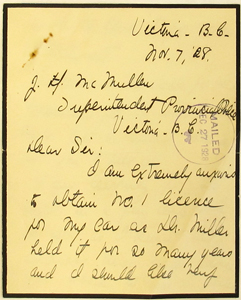 Victoria - B.C. -
Nov. 7, '28.
J. H. McMullen
Superintendent Provincial Police
Victoria - B.C.
MAILED
DEC 27 1928
Dear Sir:
I am extremely anxious
to obtain No. 1 licence
for my car as Dr. Milne
held it for so many years
and I should like very